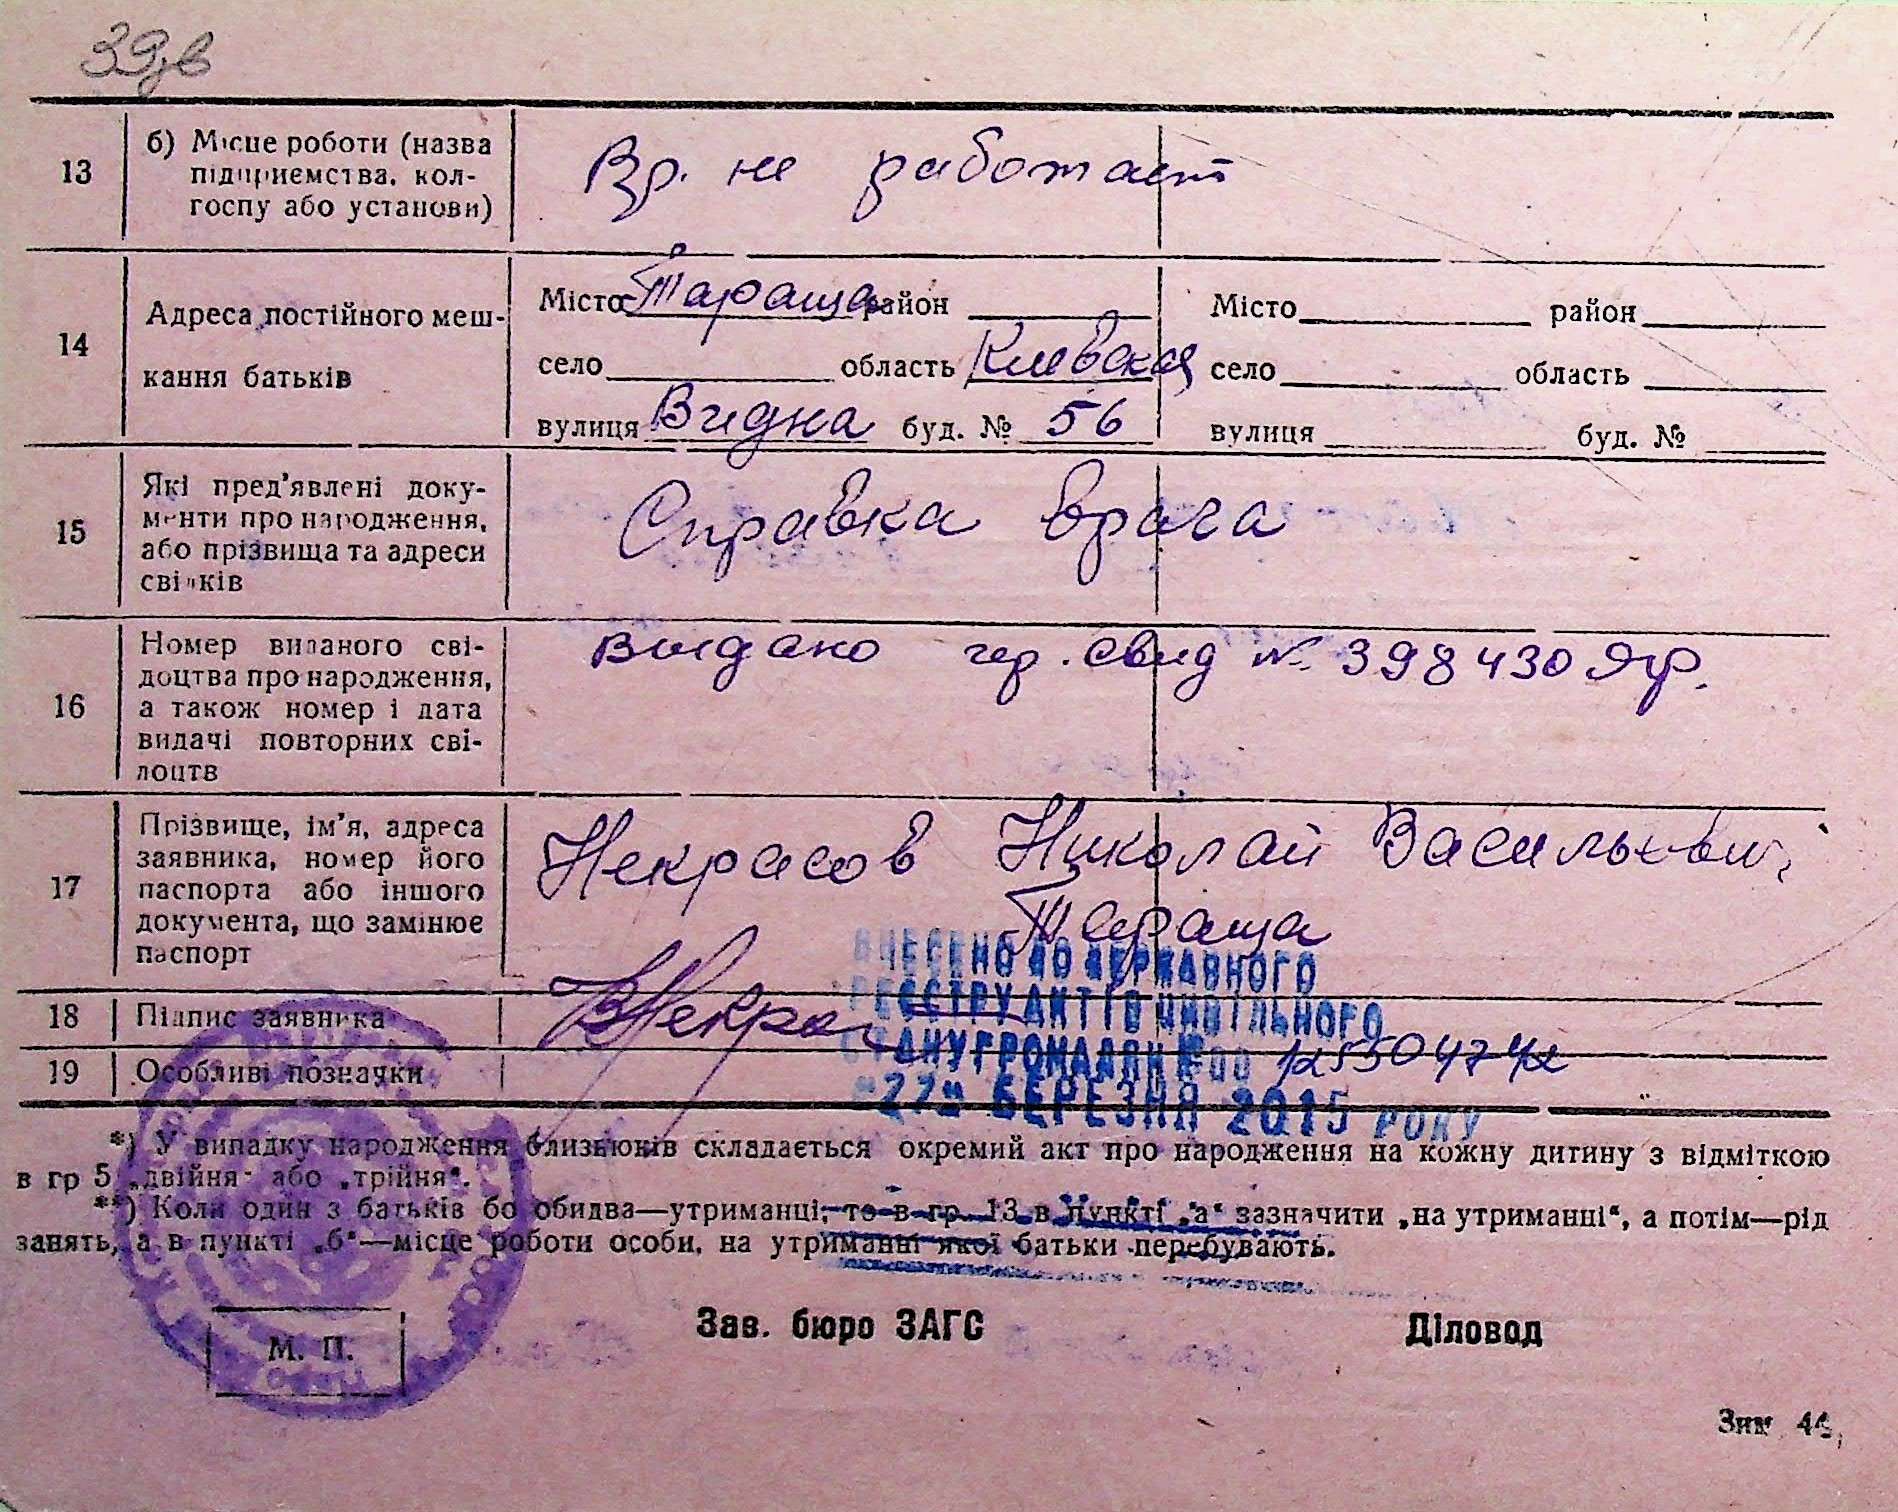 39дв
13
б) Місце роботи (назва
підприємства, кол-
госпу або установи)
Вр. не работает
14
Адреса постійного меш-
кання батьків
Місто Тараща район
село область Киевская
вулиця Видна буд. № 56
Місто район
село область
вулиця буд. №
15
Які пред'явлені доку-
менти про народження,
або прізвища та адреси
свідків
Справка врача
16
Номер виданого сві-
доцтва про народження,
а також номер і дата
видачі повторних сві-
доцтв
Выдано гер. свид № 398430 Яф.
17
Прізвище, ім'я, адреса
заявника, номер його
паспорта або іншого
документа, що замінює
паспорт
Некрасов Николай Васильевич
Тараща
18
Підпис заявника
ВНЕСЕНО ДО ДЕРЖАВНОГО
РЕЄСТРУ АКТІВ ЦИВІЛЬНОГО
СТАНУ ГРОМАДЯН № 00
"27" БЕРЕЗНЯ 2015 РОКУ
19
Особливі позначки
*) У випадку народження близнюків складається окремий акт про народження на кожну дитину з відміткою
в гр 5 „двійня" або „трійня".
**) Коли один з батьків бо обидва—утриманці, то в гр. 13 в пункті „а" зазначити „на утриманні", а потім—рід
занять, а в пункті „б"—місце роботи особи, на утриманні якої батьки перебувають.
М. П.
Зав. бюро ЗАГС
Діловод